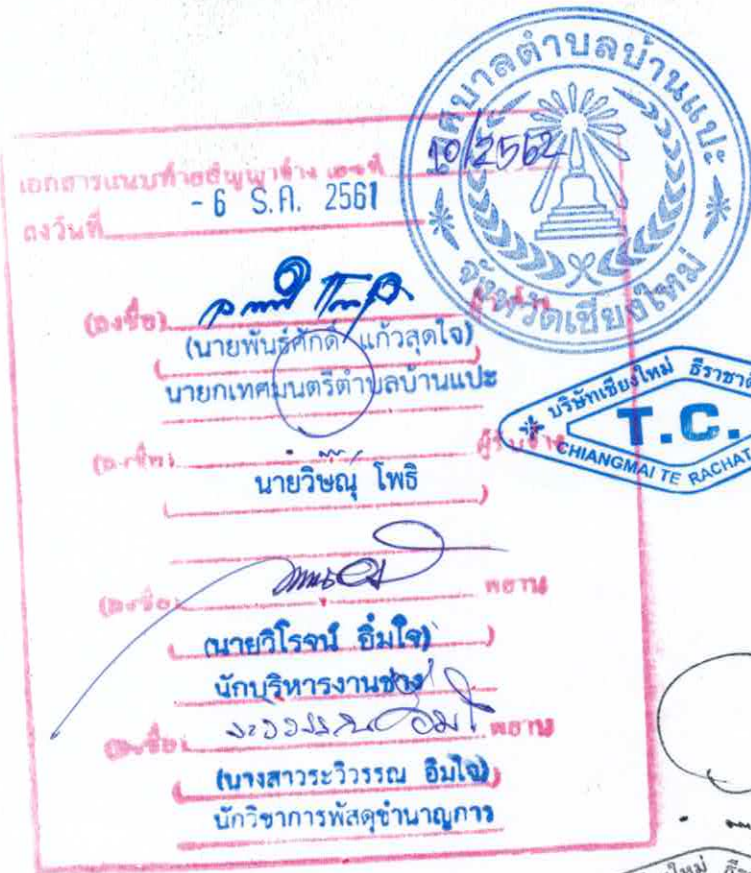 เทศบาลตำบลบ้านแปะ
จังหวัดเชียงใหม่
เอกสารแนบท้ายสัญญาจ้าง เลขที่ 10/2562
ลงวันที่ - 6 ธ.ค. 2561
(ลงชื่อ)
(นายพันธ์ศักดิ์ แก้วสุดใจ)
นายกเทศมนตรีตำบลบ้านแปะ
(ลงชื่อ) ผู้รับจ้าง
นายวิษณุ โพธิ
บริษัทเชียงใหม่ ธีราชา
T.C.
CHIANGMAI TE RACHAT
(ลงชื่อ) พยาน
(นายวิโรจน์ อิ่มใจ)
นักบริหารงานช่าง
(ลงชื่อ) พยาน
(นางสาวระวิวรรณ อิมใจ)
นักวิชาการพัสดุชำนาญการ